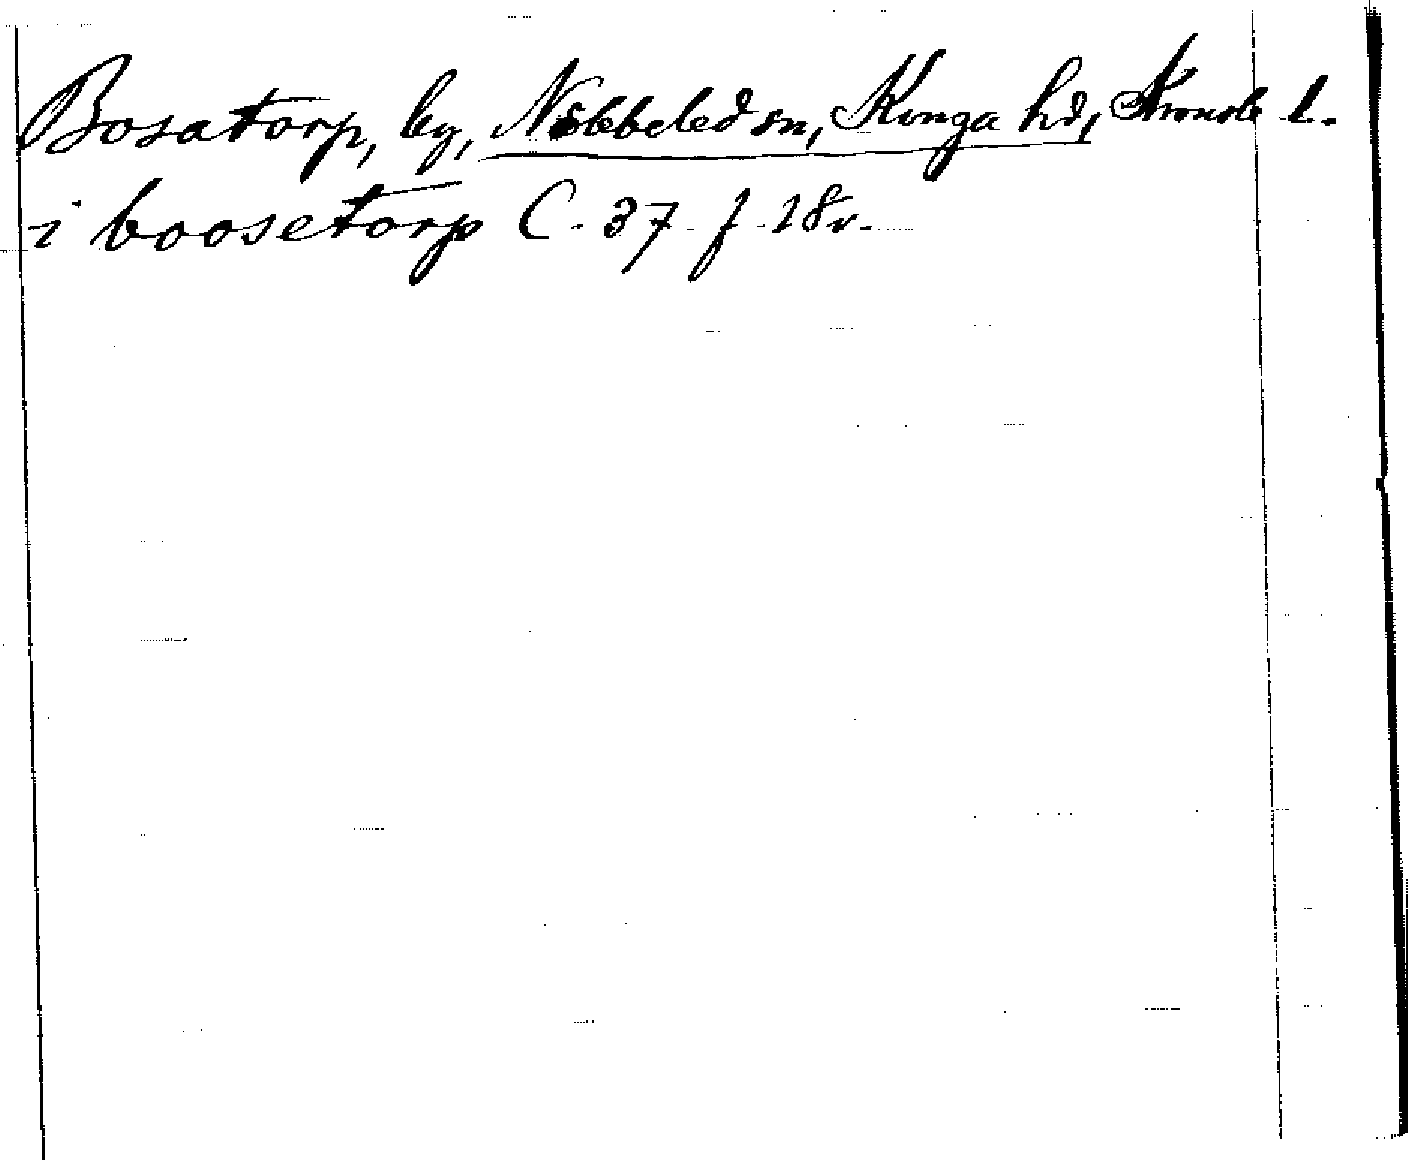 Bosatorp, by, Nöbbeled sn, Kinga hd, Kronob l.
i boosetorp C. 37 f 18v.